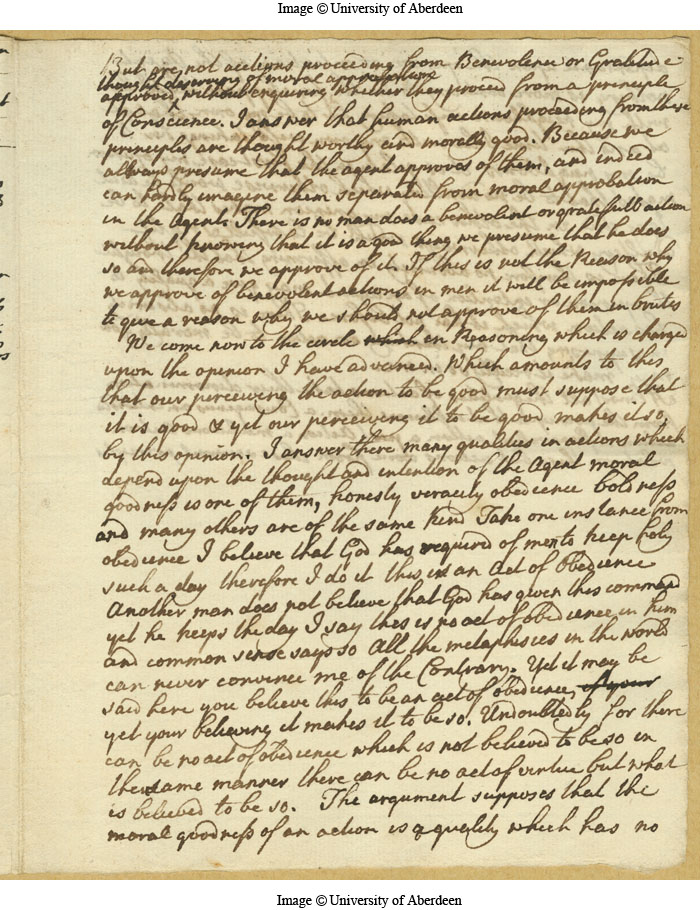 Image © University of Aberdeen
But are not actions proceeding from Benevolence or Gratitude
thought deserving of moral approbation
approved, without enquiring whether they proceed from a principle
of Conscience. I answer that human actions proceeding from these
principles are thought worthy and morally good. Because we
always presume that the agent approves of them, and indeed
can hardly imagine them separated from moral approbation
in the Agent. There is no man does a benevolent or gratefull action
without knowing that it is a good thing we presume that he does
so and therefore we approve of it. If this is not the Reason why
we approve of benevolent actions in men it will be impossible
to give a reason why we should not approve of them in brutes
We come now to the circle which in Reasoning which is charged
upon the opinion I have advanced. Which amounts to this
that our perceiving the action to be good must suppose that
it is good & yet our perceiving it to be good makes it so,
by this opinion. I answer there many qualities in actions which
depend upon the thought and intention of the Agent moral
goodness is one of them, honesty veracity obedience boldness
and many others are of the same kind Take one instance from
obedience I believe that God has required of men to keep holy
such a day therefore I do it this is an Act of Obedience
Another man does not believe that God has given this command
yet he keeps the day I say this is no act of obedience in him
and common sense says so All the metaphisics in the world
can never convince me of the Contrary. Yet it may be
said here you believe this to be an act of obedience, if your
yet your believing it makes it to be so. Undoubtedly for there
can be no act of obedience which is not believed to be so in
the same manner there can be no act of virtue but what
is believed to be so. The argument supposes that the
moral goodness of an action is a quality which has no
Image © University of Aberdeen